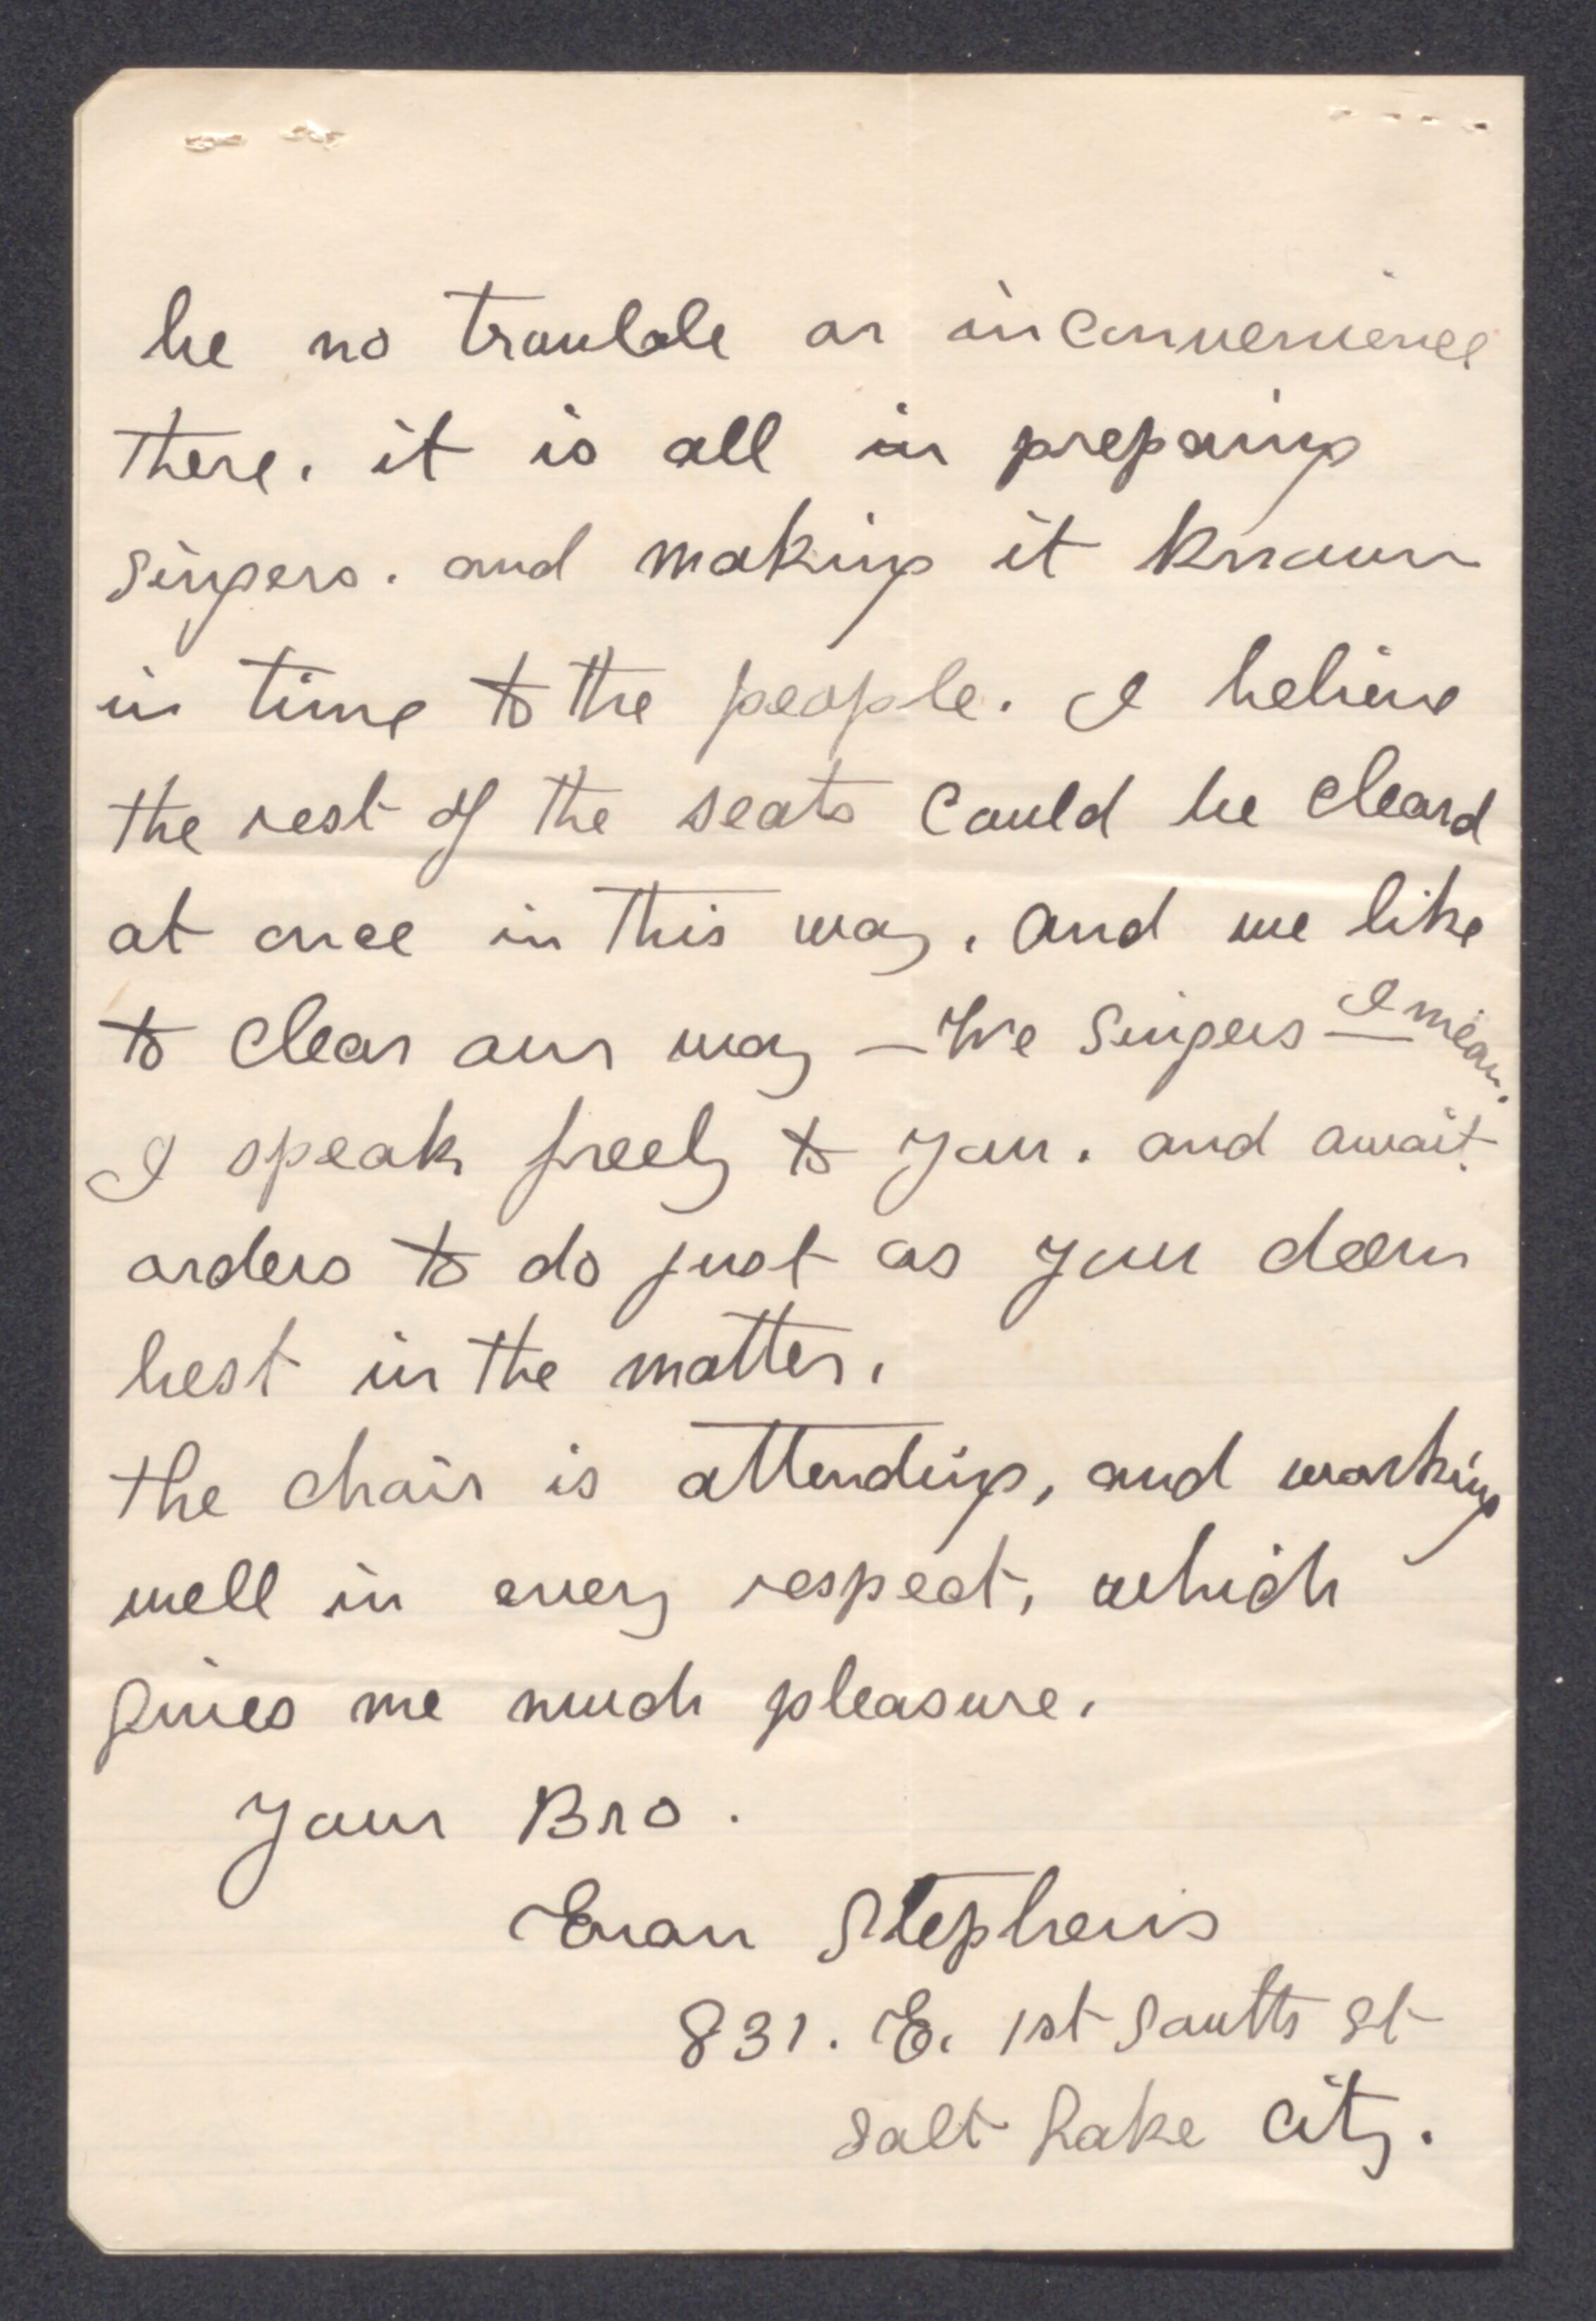 be no trouble or inconvenience
there. it is all in preparing
singers. and making it known
in time to the people. I believe
the rest of the seats could be cleard
at once in this way. and we like
to clear our way – We singers – I mean.
I speak freely to you. and await
orders to do just as you deem
best in the matter.
the choir is attending, and working
well in every respect, which
gives me much pleasure.
Your Bro.
Evan Stephens
831. E. 1st South St
Salt Lake City.